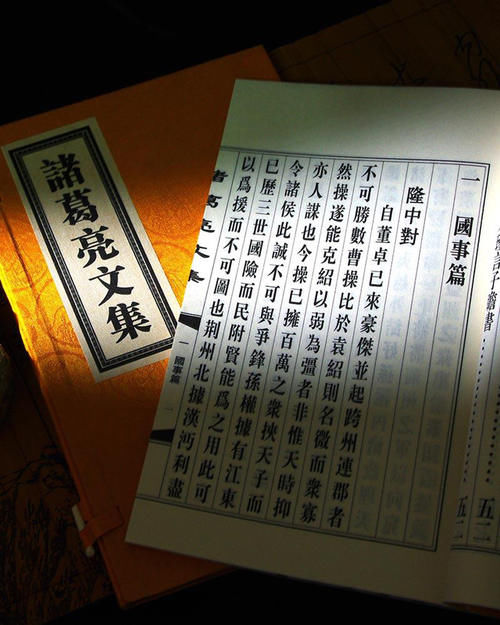 諸葛亮文集
一 國事篇
隆中對
自董卓已來豪傑並起跨州連郡者
不可勝數曹操比於袁紹則名微而衆寡
然操遂能克紹以弱爲彊者非惟天時抑
亦人謀也今操已擁百萬之衆挾天子而
令諸侯此誠不可與爭鋒孫權據有江東
已歷三世國險而民附賢能爲之用此可
以爲援而不可圖也荊州北據漢沔利盡
諸葛亮文集
一 國事篇
一
五二
五二